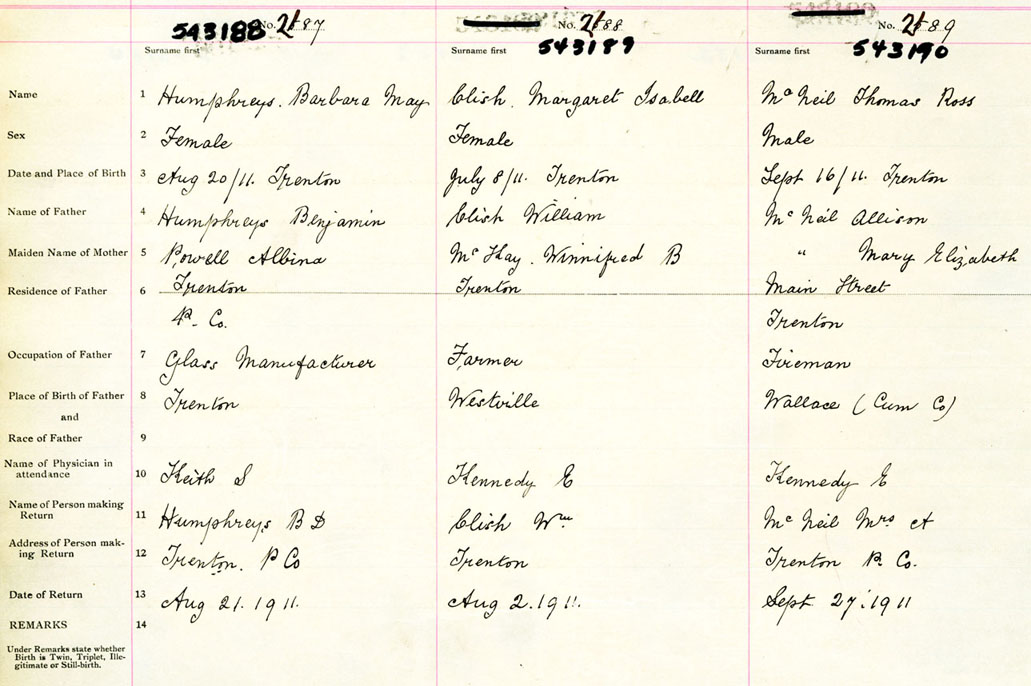 543188 No. 2587
No. 2588
543189
No. 2589
543190
Surname first Surname first Surname first
Name 1 Humphreys. Barbara May Clish. Margaret Isabell Mc Neil Thomas Ross
Sex 2 Female Female Male
Date and Place of Birth 3 Aug 20/11. Trenton July 8/11. Trenton Sept 16/11. Trenton
Name of Father 4 Humphreys Benjamin Clish William Mc Neil Allison
Maiden Name of Mother 5 Powell Albina Mc Kay. Winnifred B " Mary Elizabeth
Residence of Father 6 Trenton Trenton Main Street
P. Co. Trenton
Occupation of Father 7 Glass Manufacturer Farmer Fireman
Place of Birth of Father 8 Trenton Westville Wallace (Cum Co)
and
Race of Father 9
Name of Physician in
attendance 10 Keith S Kennedy E Kennedy E
Name of Person making
Return 11 Humphreys B D Clish Wm Mc Neil Mrs A
Address of Person mak-
ing Return 12 Trenton. P Co Trenton Trenton P. Co.
Date of Return 13 Aug 21. 1911. Aug 2. 1911. Sept 27. 1911
REMARKS 14
Under Remarks state whether
Birth is Twin, Triplet, Ille-
gitimate or Still-birth.